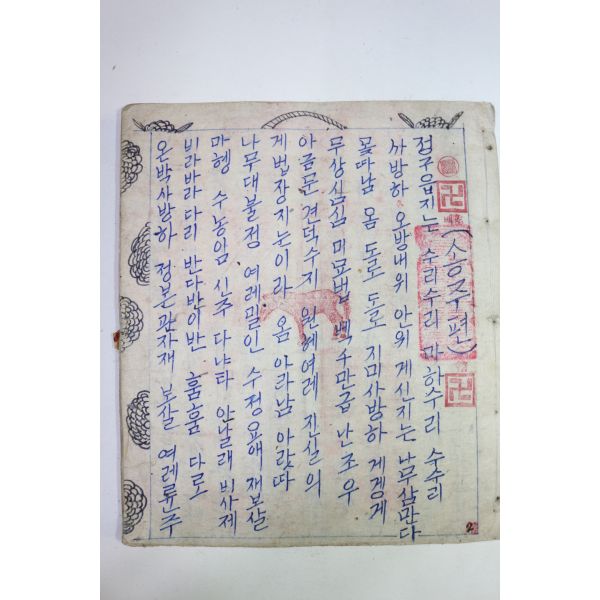 (송주편)
정구읍지는 수리수리 마하수리 수수리
사방하 오방내위 안위 게신지는 나무삼만다
못따남 옴 도로 도로 지미사방하 게겡게
무상심심 미묘법 백 천만급 난 조우
아금문 견덕수지 원혜여레 진실의
게법장지눈이라 옴 아라남 아랏따
나무대불정 여레밀인 수정요애 재보살
마헹 수능암 신주 다냐타 안날래 비사제
비라바라 다리 반다반이반 훔훔 다로
온박사방하 정본관자재 보살 여레륙주